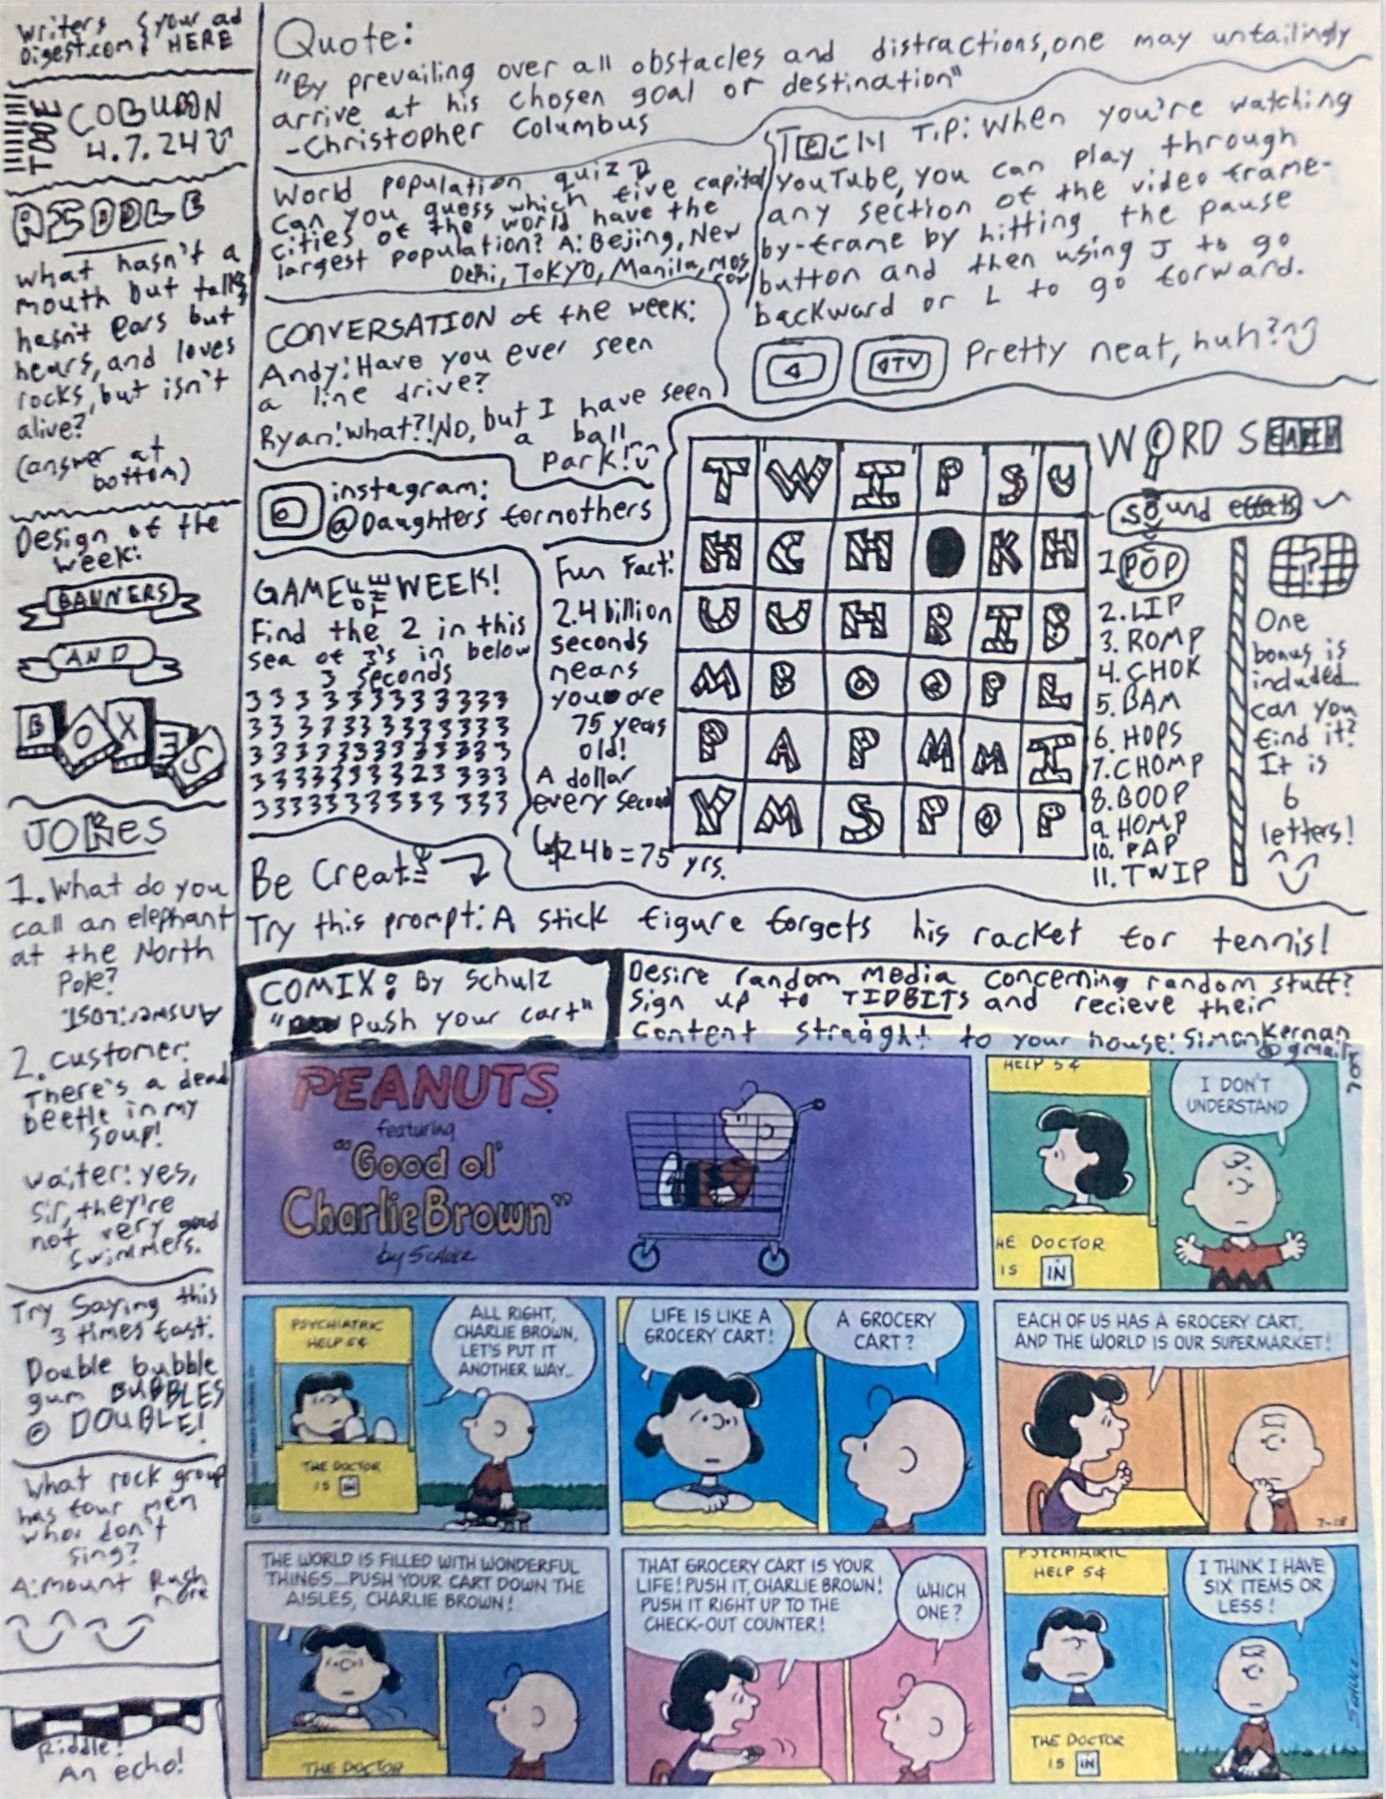 Writers Digest.com
your ad HERE
COBUMN
4.7.24
RIDDLE
what hasn't a
mouth but talks
hasn't ears but
hears, and loves
rocks, but isn't
alive?
(answer at
bottom)
Design of the
week:
BANNERS
AND
BOXES
JOKES
1. What do you
call an elephant
at the North
Pole?
Answer: LOST.
2. Customer:
There's a dead
beetle in my
soup!
waiter: yes,
sir, they're
not very good
swimmers.
Try Saying this
3 times fast:
Double bubble
gum BUBBLES
DOUBLE!
What rock group
has four men
who don't
sing?
A: Mount Rush
more
Riddle:
An echo!
Quote:
"By prevailing over all obstacles and distractions, one may unfailingly
arrive at his chosen goal or destination"
-Christopher Columbus
World population quiz
Can you guess which five capital
cities of the world have the
largest population? A: Bejing, New
Dehi, TOKYO, Manila, Mos
cow
TECH TIP: When you're watching
YouTube, you can play through
any section of the video frame-
by-frame by hitting the pause
button and then using J to go
backward or L to go forward.
TV
Pretty neat, huh?
CONVERSATION of the week:
Andy: Have you ever seen
a line drive?
Ryan: what?! No, but I have seen
a ball
park!
instagram:
@Daughters formothers
GAME OF THE WEEK!
Find the 2 in this
sea of 3's in below
3 seconds
3 3 3 3 3 3 3 3 3 3 3 3 3
3 3 3 3 3 3 3 3 3 3 3 3 3
3 3 3 3 3 3 3 3 3 3 3 3 3
3 3 3 3 3 3 3 3 2 3 3 3 3
3 3 3 3 3 3 3 3 3 3 3 3 3
Fun Fact:
2.4 billion
seconds
means
you are
75 years
old!
A dollar
every second
$2.4b = 75 yrs.
T W I P S U
H C H O K H
U U H B I B
M B O O P L
P A P M M I
Y M S P O P
WORD SEARCH
sound effects
1. POP
2. LIP
3. ROMP
4. CHOK
5. BAM
6. HOPS
7. CHOMP
8. BOOP
9. HOMP
10. PAP
11. TWIP
?
One
bonus is
included
can you
find it?
It is
6
letters!
Be Creative
Try this prompt: A stick figure forgets his racket for tennis!
COMIX: By Schulz
"Push your cart"
Desire random media concerning random stuff?
Sign up to TIDBITS and recieve their
Content straight to your house: SimonKernan
@gmail.com
PEANUTS
featuring
"Good ol'
Charlie Brown"
by SCHULZ
HELP 5¢
I DON'T
UNDERSTAND
HE DOCTOR
IS IN
PSYCHIATRIC
HELP 5¢
ALL RIGHT,
CHARLIE BROWN,
LET'S PUT IT
ANOTHER WAY...
THE DOCTOR
IS IN
LIFE IS LIKE A
GROCERY CART!
A GROCERY
CART?
EACH OF US HAS A GROCERY CART,
AND THE WORLD IS OUR SUPERMARKET!
7-28
THE WORLD IS FILLED WITH WONDERFUL
THINGS...PUSH YOUR CART DOWN THE
AISLES, CHARLIE BROWN!
THE DOCTOR
THAT GROCERY CART IS YOUR
LIFE! PUSH IT, CHARLIE BROWN!
PUSH IT RIGHT UP TO THE
CHECK-OUT COUNTER!
WHICH
ONE?
PSYCHIATRIC
HELP 5¢
I THINK I HAVE
SIX ITEMS OR
LESS!
THE DOCTOR
IS IN
SCHULZ